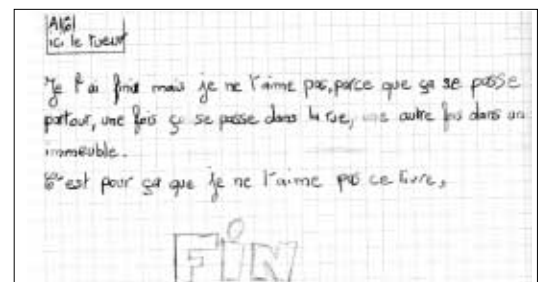 Allô!
ici le tueur
Je l'ai finie mais je ne l'aime pas, parce que ça se passe
partout, une fois ça se passe dans la rue, une autre fois dans un
immeuble.
C'est pour ça que je ne l'aime pas ce livre.
FIN